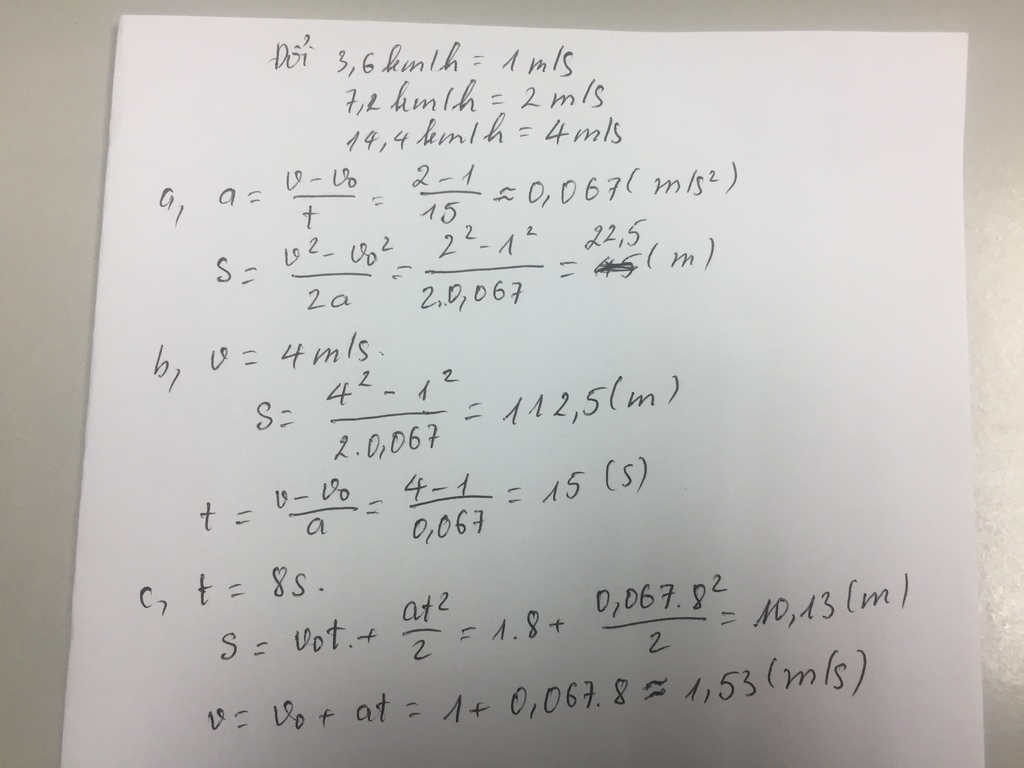 Đổi 3,6 km/h = 1 m/s
7,2 km/h = 2 m/s
14,4 km/h = 4 m/s
a, a = (v - v₀)/t = (2 - 1)/15 ≈ 0,067 (m/s²)
S = (v² - v₀²)/(2a) = (2² - 1²)/(2.0,067) = 22,5 (m)
b, v = 4 m/s.
S = (4² - 1²)/(2.0,067) = 112,5 (m)
t = (v - v₀)/a = (4 - 1)/0,067 = 15 (s)
c, t = 8s.
S = v₀t + at²/2 = 1.8 + (0,067.8²)/2 = 10,13 (m)
v = v₀ + at = 1 + 0,067.8 ≈ 1,53 (m/s)